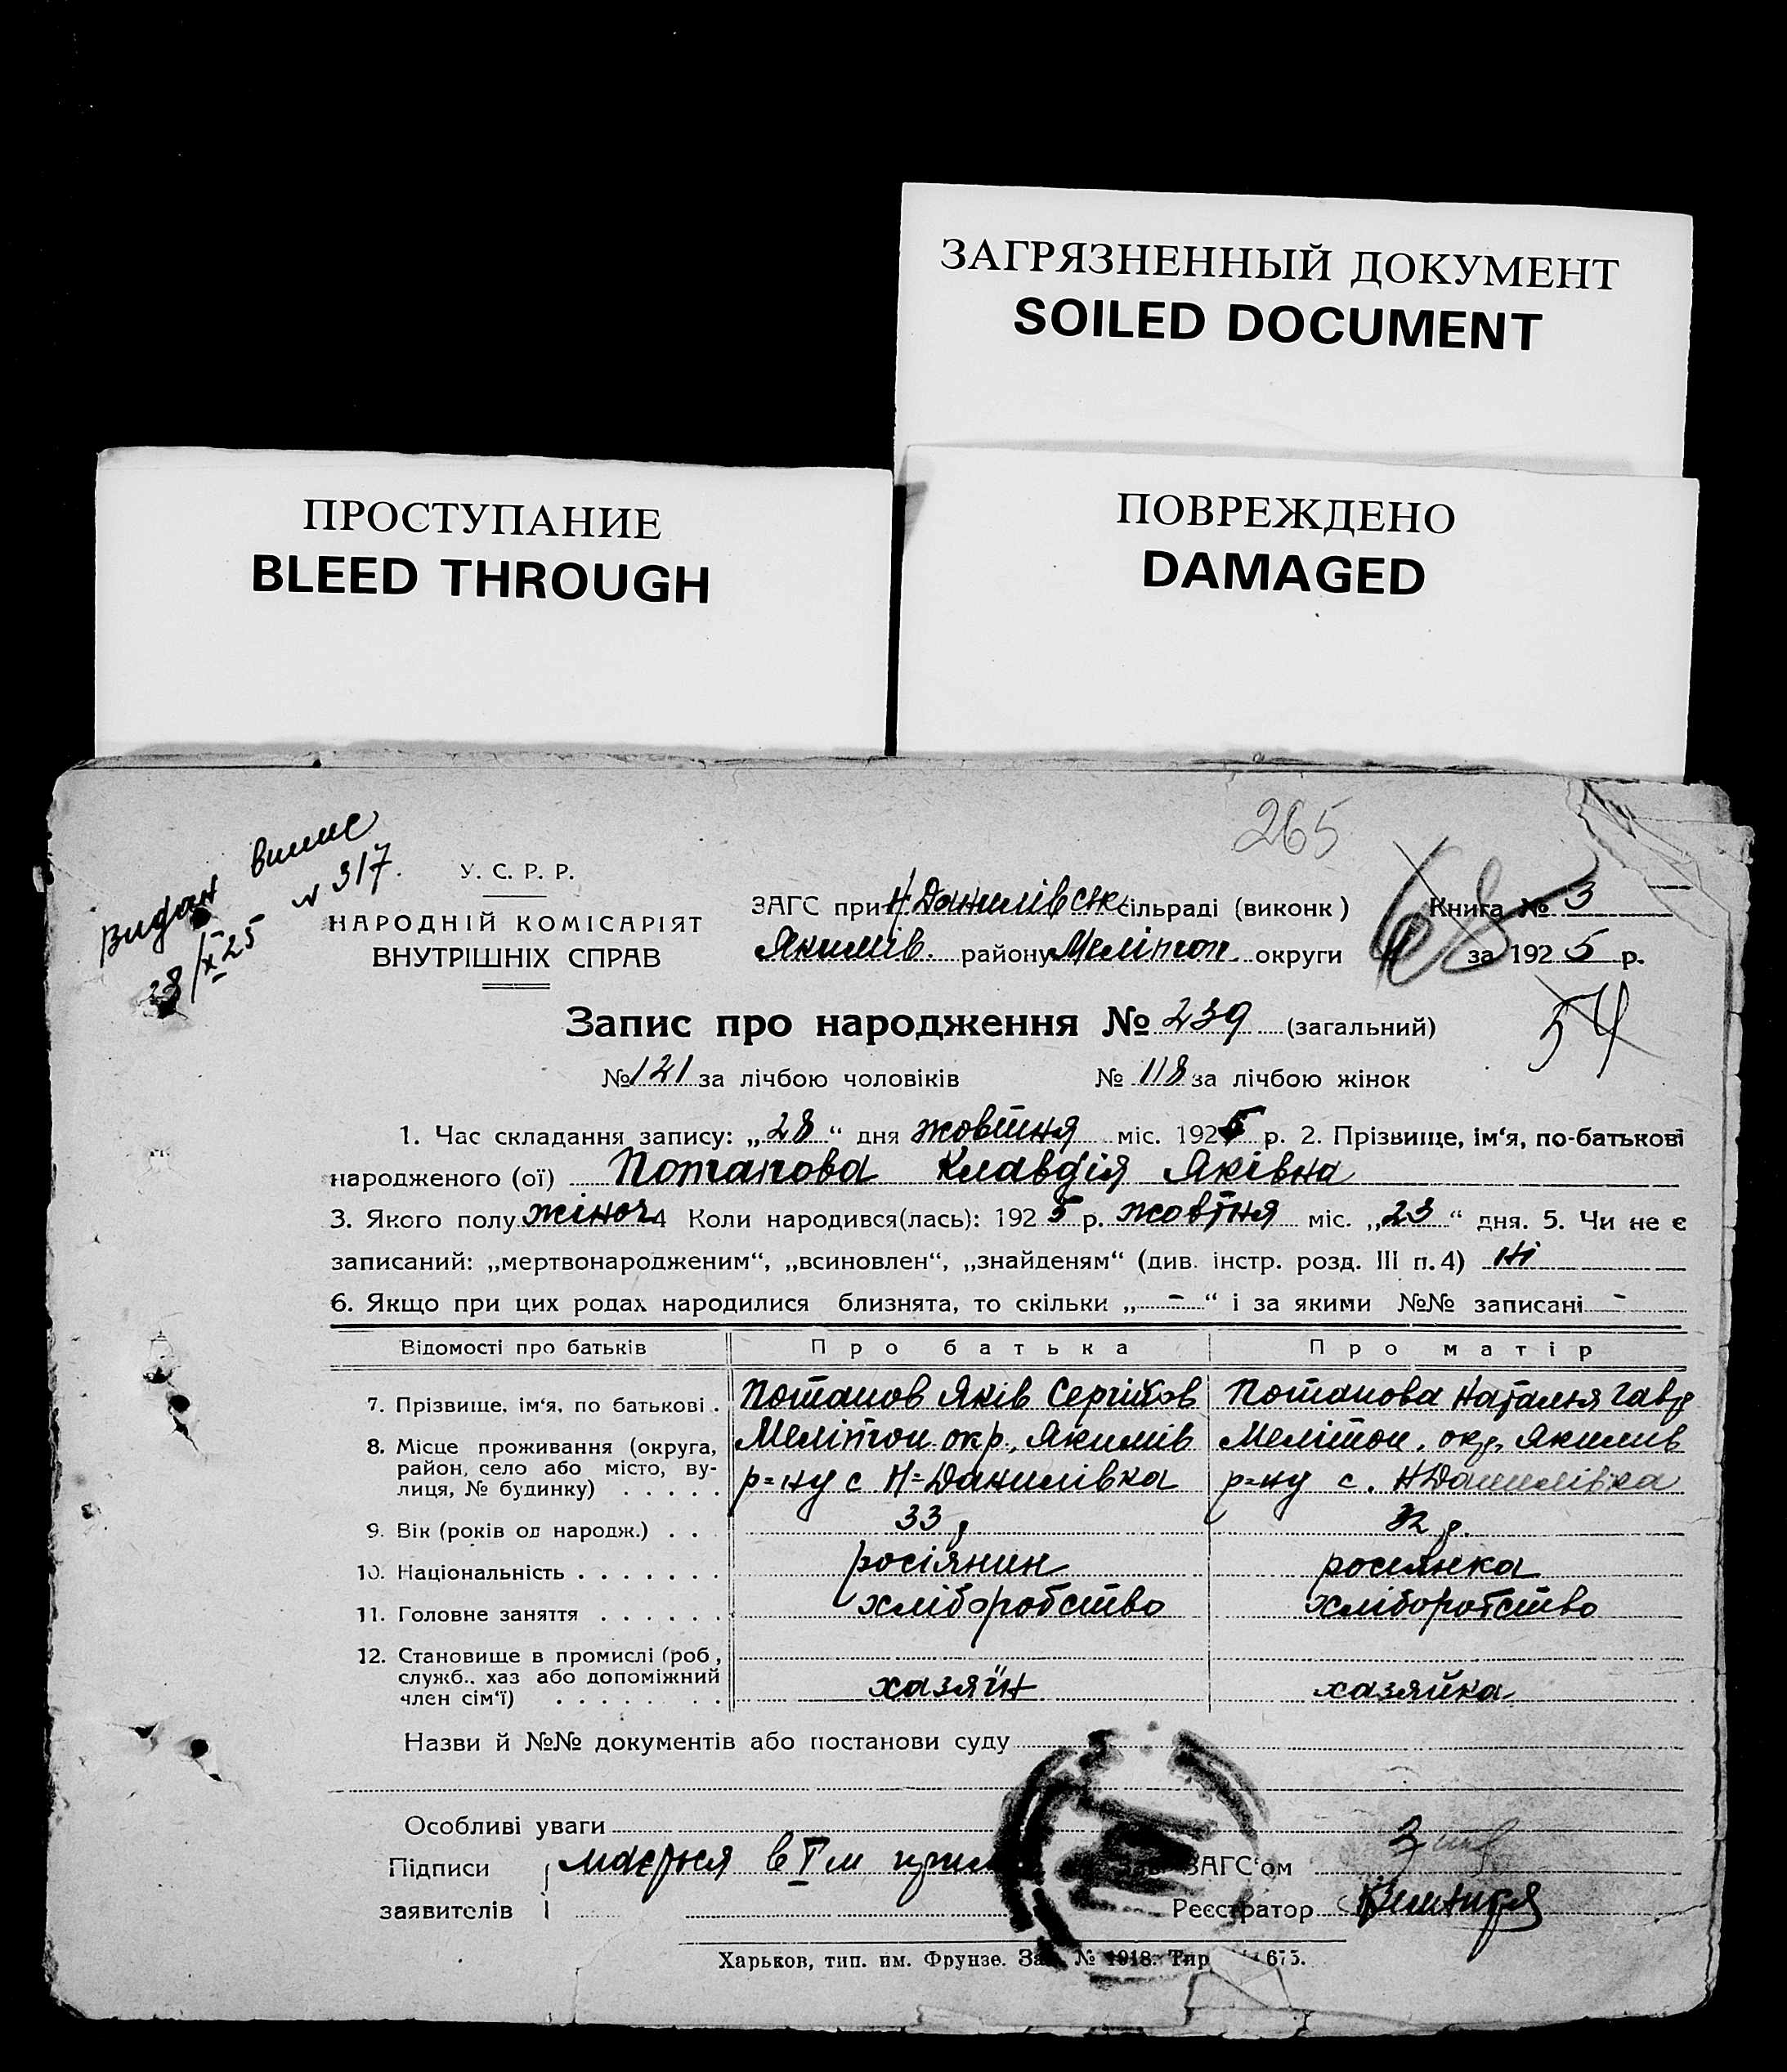 ЗАГРЯЗНЕННЫЙ ДОКУМЕНТ
SOILED DOCUMENT
ПРОСТУПАНИЕ
BLEED THROUGH
ПОВРЕЖДЕНО
DAMAGED
265
Видан випис
28/X 25 № 317.
У. С. Р. Р.
НАРОДНІЙ КОМІСАРІЯТ
ВНУТРІШНІХ СПРАВ
ЗАГС при Н Данилівськ сільраді (виконк) Книга № 3
Якимів. району Мелітоп. округи за 1925 р.
68
54
Запис про народження № 239 (загальний)
№ 121 за лічбою чоловіків № 118 за лічбою жінок
1. Час складання запису: „28“ дня жовтня міс. 1925 р. 2. Прізвище, ім‘я, по-батькові
народженого (ої) Потапова Клавдія Яківна
3. Якого полу жіноч 4 Коли народився(лась): 1925 р. жовтня міс. „23“ дня. 5. Чи не є
записаний: „мертвонародженим“, „всиновлен“, „знайденям“ (див. інстр. розд. III п. 4) ні
6. Якщо при цих родах народилися близнята, то скільки „-“ і за якими №№ записані -
Відомості про батьків Про батька Про матір
7. Прізвище, ім‘я, по батькові . Потапов Яків Сергійов Потапова Наталья Гавр
8. Місце проживання (округа, Мелітоп. окр., Якимів Мелітоп. окр. Якимив
район, село або місто, ву- р=ну с Н=Данилівка р=ну с. Н Данилівка
лиця, № будинку) . . . . .
9. Вік (років од народж.) . . 33 р 32 р.
10. Національність . . . . . . . росіянин росиянка
11. Головне заняття . . . . . . хліборобство хліборобство
12. Становище в промислі (роб,
служб.. хаз або допоміжний хазяїн хазяйка
член сім‘ї) . . . . . . . .
Назви й №№ документів або постанови суду
Особливі уваги
Підписи мається в I м прим ЗАГС‘ом
заявителів Реєстратор
Харьков, тип. им. Фрунзе. Зак. № 1918. Тир 675.